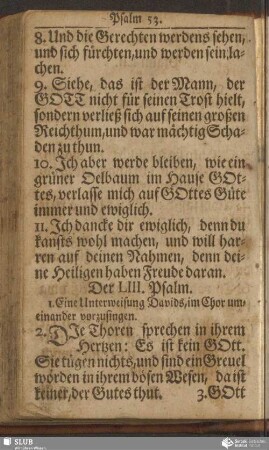 Psalm 53.
8. Und die Gerechten werdens sehen,
und sich fürchten, und werden sein, la-
chen.
9. Siehe, das ist der Mann, der
GOTT nicht für seinen Trost hielt,
sondern verließ sich auf seinen großen
Reichthum, und war mächtig Scha-
den zu thun.
10. Ich aber werde bleiben, wie ein
grüner Oelbaum im Hause GOt-
tes, verlasse mich auf GOttes Güte
immer und ewiglich.
11. Ich dancke dir ewiglich, denn du
kansts wohl machen, und will har-
ren auf deinen Nahmen, denn dei-
ne Heiligen haben Freude daran.
Der LIII. Psalm.
1. Eine Unterweisung Davids, im Chor um-
einander vorzusingen.
2. DIe Thoren sprechen in ihrem
Hertzen: Es ist kein GOtt.
Sie tügen nichts, und sind ein Greuel
worden in ihrem bösen Wesen, da ist
keiner, der Gutes thut. 3. GOtt
SLUB